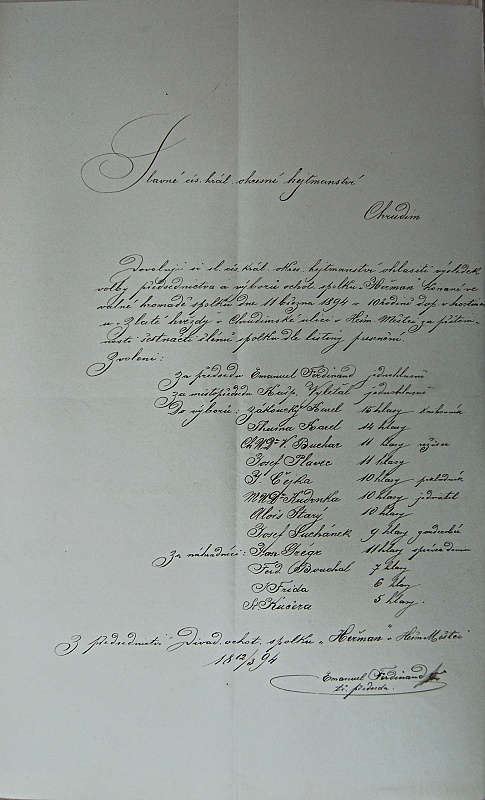 Slavné cís. král. okresní hejtmanství
Chrudim
Dovoluji si sl. cís. král. okres. hejtmanství ohlásiti výsledek
volby předsednictva a výboru ochot. spolku „Heřman" konané ve
valné hromadě spolku dne 11 března 1894 v 10 hodin dop. v hostinci
u „Zlaté hvězdy" v Chrudimské ulici v Heřm. Městci za přítom-
nosti šestnácti členů spolku dle listiny presenční.
Zvoleni:
Za předsedu Emanuel Ferdinand jednohlasně
za místopředsedu Kašp. Vyletal jednohlasně
Do výboru: Zákoucký Karel 15 hlasy knihovník
Thuma Karel 14 hlasy
Ch. M. Dr. V. Buchar 11 hlasy režisér
Josef Plavec 11 hlasy
F. Čejka 10 hlasy pokladník
M. U. Dr. Kudrnka 10 hlasy jednatel
Alois Starý 10 hlasy
Josef Suchánek 9 hlasy
Za náhradníci: Jan Grégr 11 hlasy
Ferd. Bouchal 7 hlasy
Frida 6 hlasy
A Kučera 5 hlasy.
Z předsednictví Divad. ochot. spolku „Heřman" v Heřm. Městci
18 12/3 94
Emanuel Ferdinand
t. č. předseda.